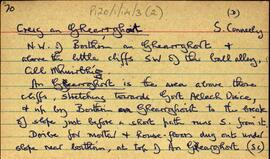 70
P120/1/14/3 (2)
(2)
Creig an Ghearrghort
S. Conneely
N.W. of Boithrín an Ghearrghort &
above the little cliffs SW of the ball alley,
Cill Mhuirbhigh
An Ghearrghort is the area above these
cliffs, stretching towards Gort
& n. by Boithrín an Ghearrghort is the break
of slope just before a short path runs S. from it
Doribe for mortar & house-floors dug out under
slope near boithrín, at top of An Ghearrghort (SC)